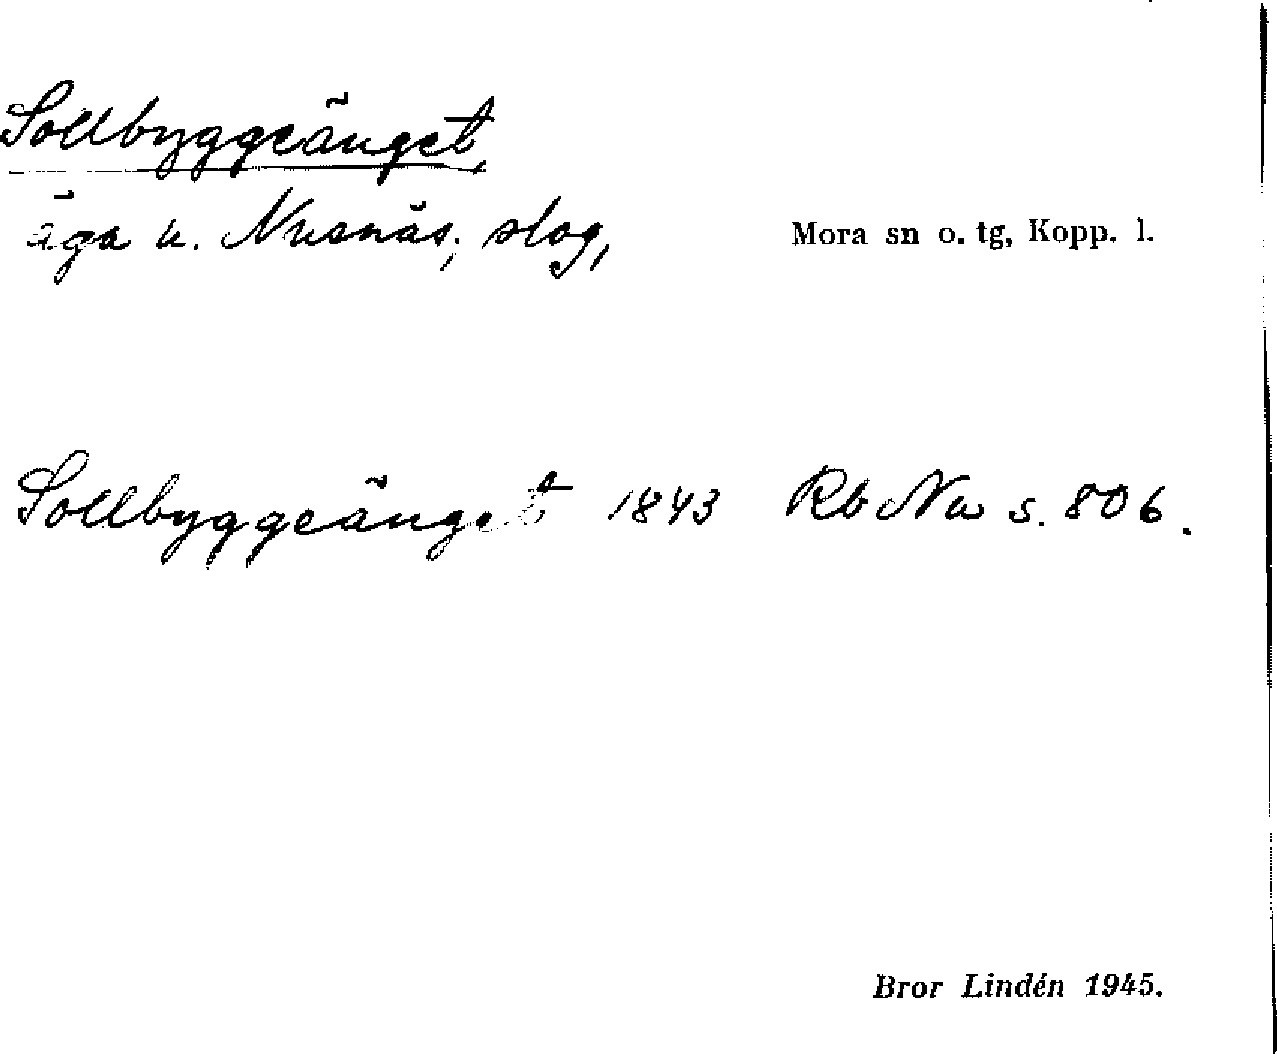 Sollbyggeänget,
äga u. Nusnäs, slog,
Mora sn o. tg, Kopp. l.
Sollbyggeänget 1843 Rb Nu s. 806.
Bror Lindén 1945.